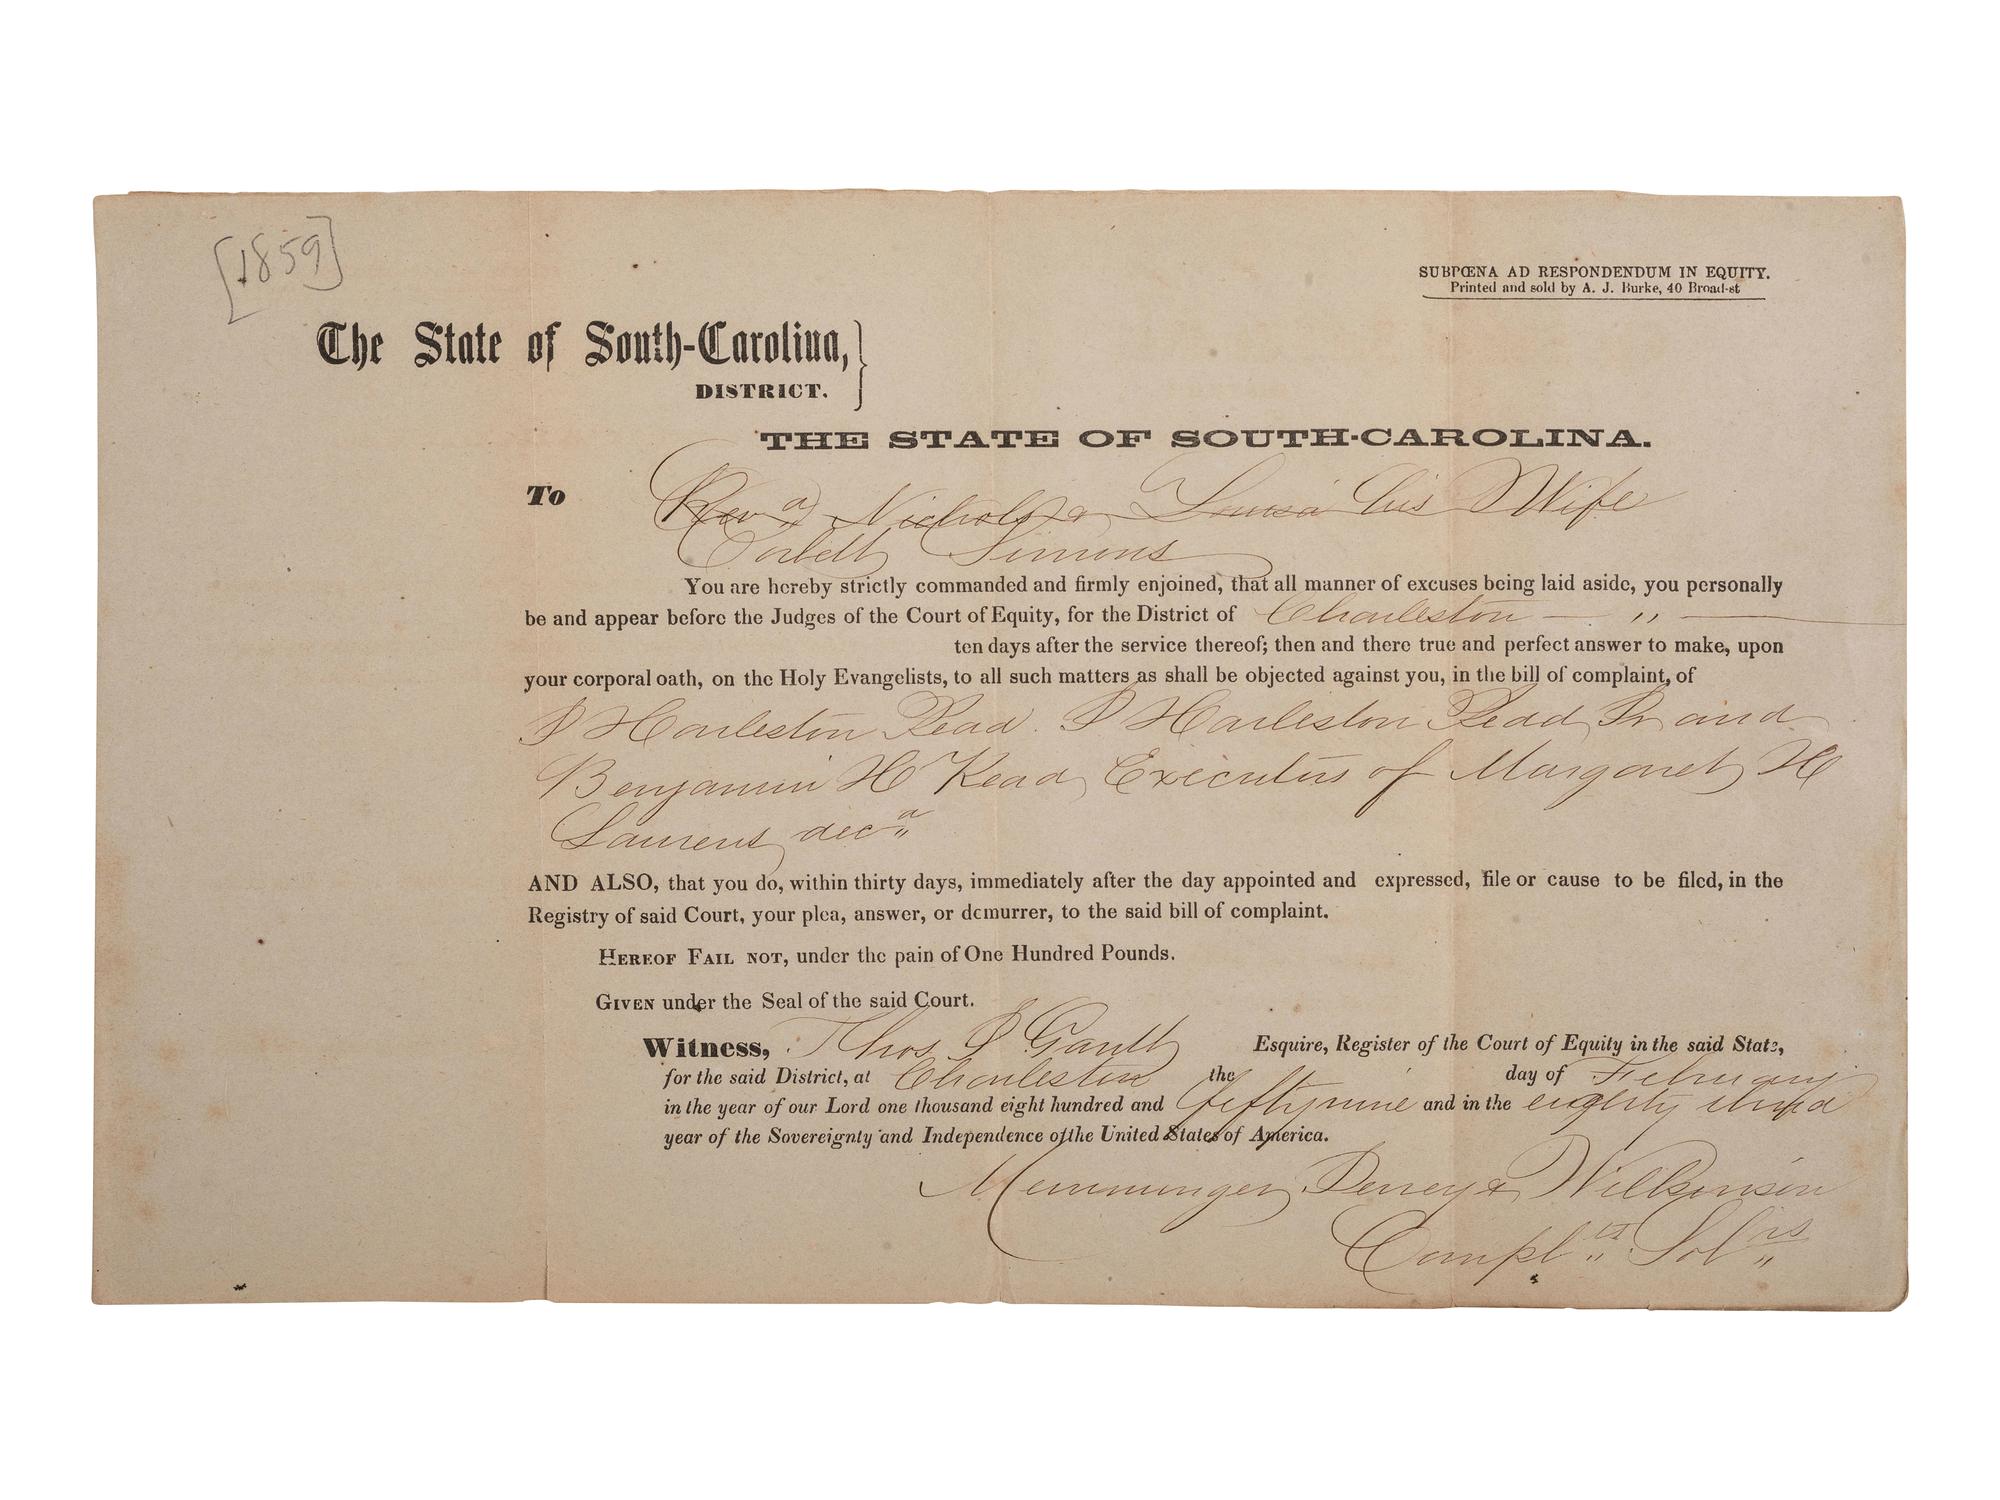 [1859]
SUBPŒNA AD RESPONDENDUM IN EQUITY.
Printed and sold by A. J. Burke, 40 Broad-st
The State of South-Carolina,
DISTRICT.
THE STATE OF SOUTH-CAROLINA.
To Revd Nichols & Louisa his Wife
Corbett Simons
You are hereby strictly commanded and firmly enjoined, that all manner of excuses being laid aside, you personally
be and appear before the Judges of the Court of Equity, for the District of Charleston — " —
ten days after the service thereof; then and there true and perfect answer to make, upon
your corporal oath, on the Holy Evangelists, to all such matters as shall be objected against you, in the bill of complaint, of
J Harleston Read. J Harleston Read Jr and
Benjamin H Read, Executors of Margaret H
Laurens decd
AND ALSO, that you do, within thirty days, immediately after the day appointed and expressed, file or cause to be filed, in the
Registry of said Court, your plea, answer, or demurrer, to the said bill of complaint.
HEREOF FAIL NOT, under the pain of One Hundred Pounds.
GIVEN under the Seal of the said Court.
Witness, Thos J Gantt Esquire, Register of the Court of Equity in the said State,
for the said District, at Charleston the day of February
in the year of our Lord one thousand eight hundred and fifty nine and in the eighty third
year of the Sovereignty and Independence of the United States of America.
Memminger, Wilkinson
Complts Solrs